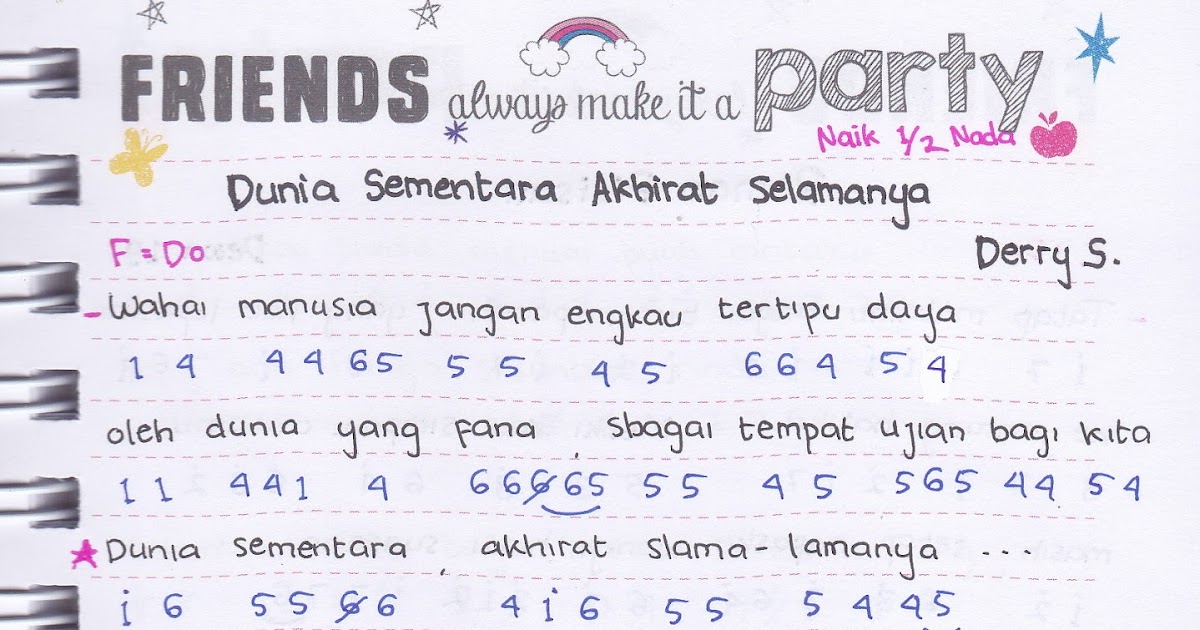 FRIENDS always make it a party
Naik 1/2 Nada
Dunia Sementara Akhirat Selamanya
F = Do
Derry S.
- Wahai manusia jangan engkau tertipu daya
1 4 4 4 6 5 5 5 4 5 6 6 4 5 4
oleh dunia yang fana sbagai tempat ujian bagi kita
1 1 4 4 1 4 6 6 6̸ 6 5 5 5 4 5 5 6 5 4 4 5 4
Dunia sementara akhirat slama - lamanya ...
i 6 5 5 6̸ 6 4 i 6 5 5 5 4 4 5